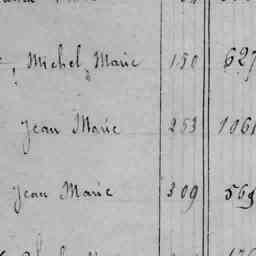 , Michel Marie 150 627
Jean Marie 253 1061
Jean Marie 309 569